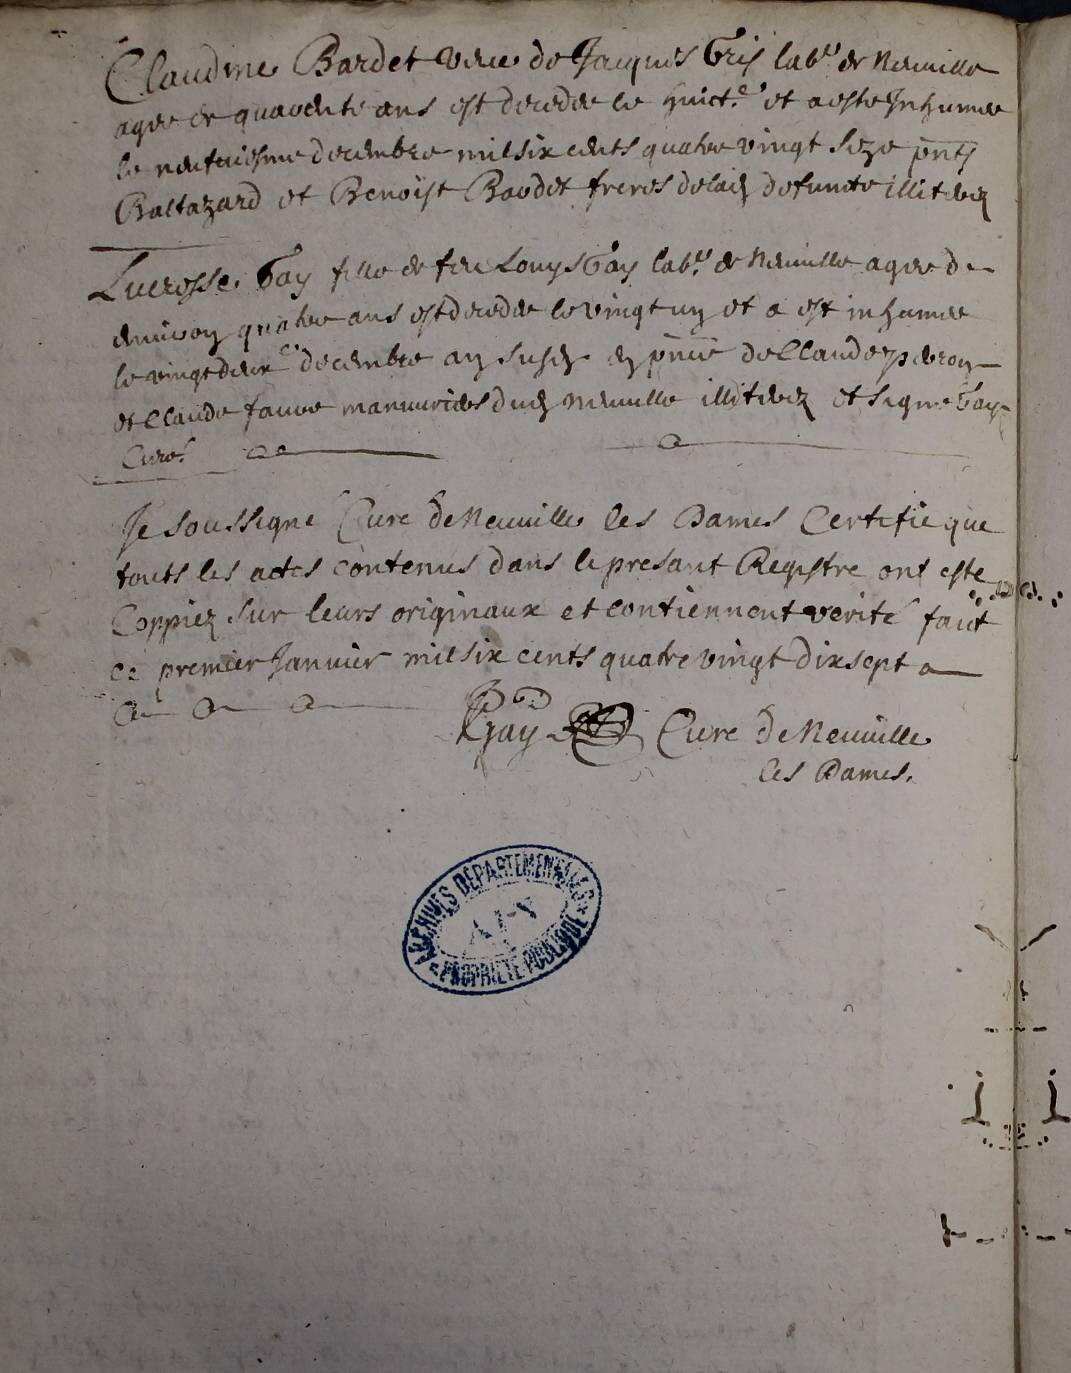 Claudine Bardet veve de Jacques Gris lab.r de Neuville
agee de quarente ans est decedee le huict.e et a este Inhumee
le neufuiesme decembre mil six cents quatre vingt seze pnts
Baltazard et Benoist Bardet freres de lad defuncte illiterez
Lucresse Gay fille de feu Louys Gay lab.r de Neuville agee de
enuiron quatre ans est decedee le vingt un et a est inhumee
le vingt deux.e decembre an susd en pnce de Claude
et Claude faure manuuriers dud Neuville illiterez et signe Gay
Cure.
Je soussigne Cure de Neuville les Dames Certifie que
touts les actes contenus dans le presant Registre ont este
Coppiez sur leurs originaux et contiennent verité fait
ce premier Janvier mil six cents quatre vingt dix sept
Gay Cure de Neuville
les Dames.
ARCHIVES DÉPARTEMENTALES
AIN
PROPRIÉTÉ PUBLIQUE